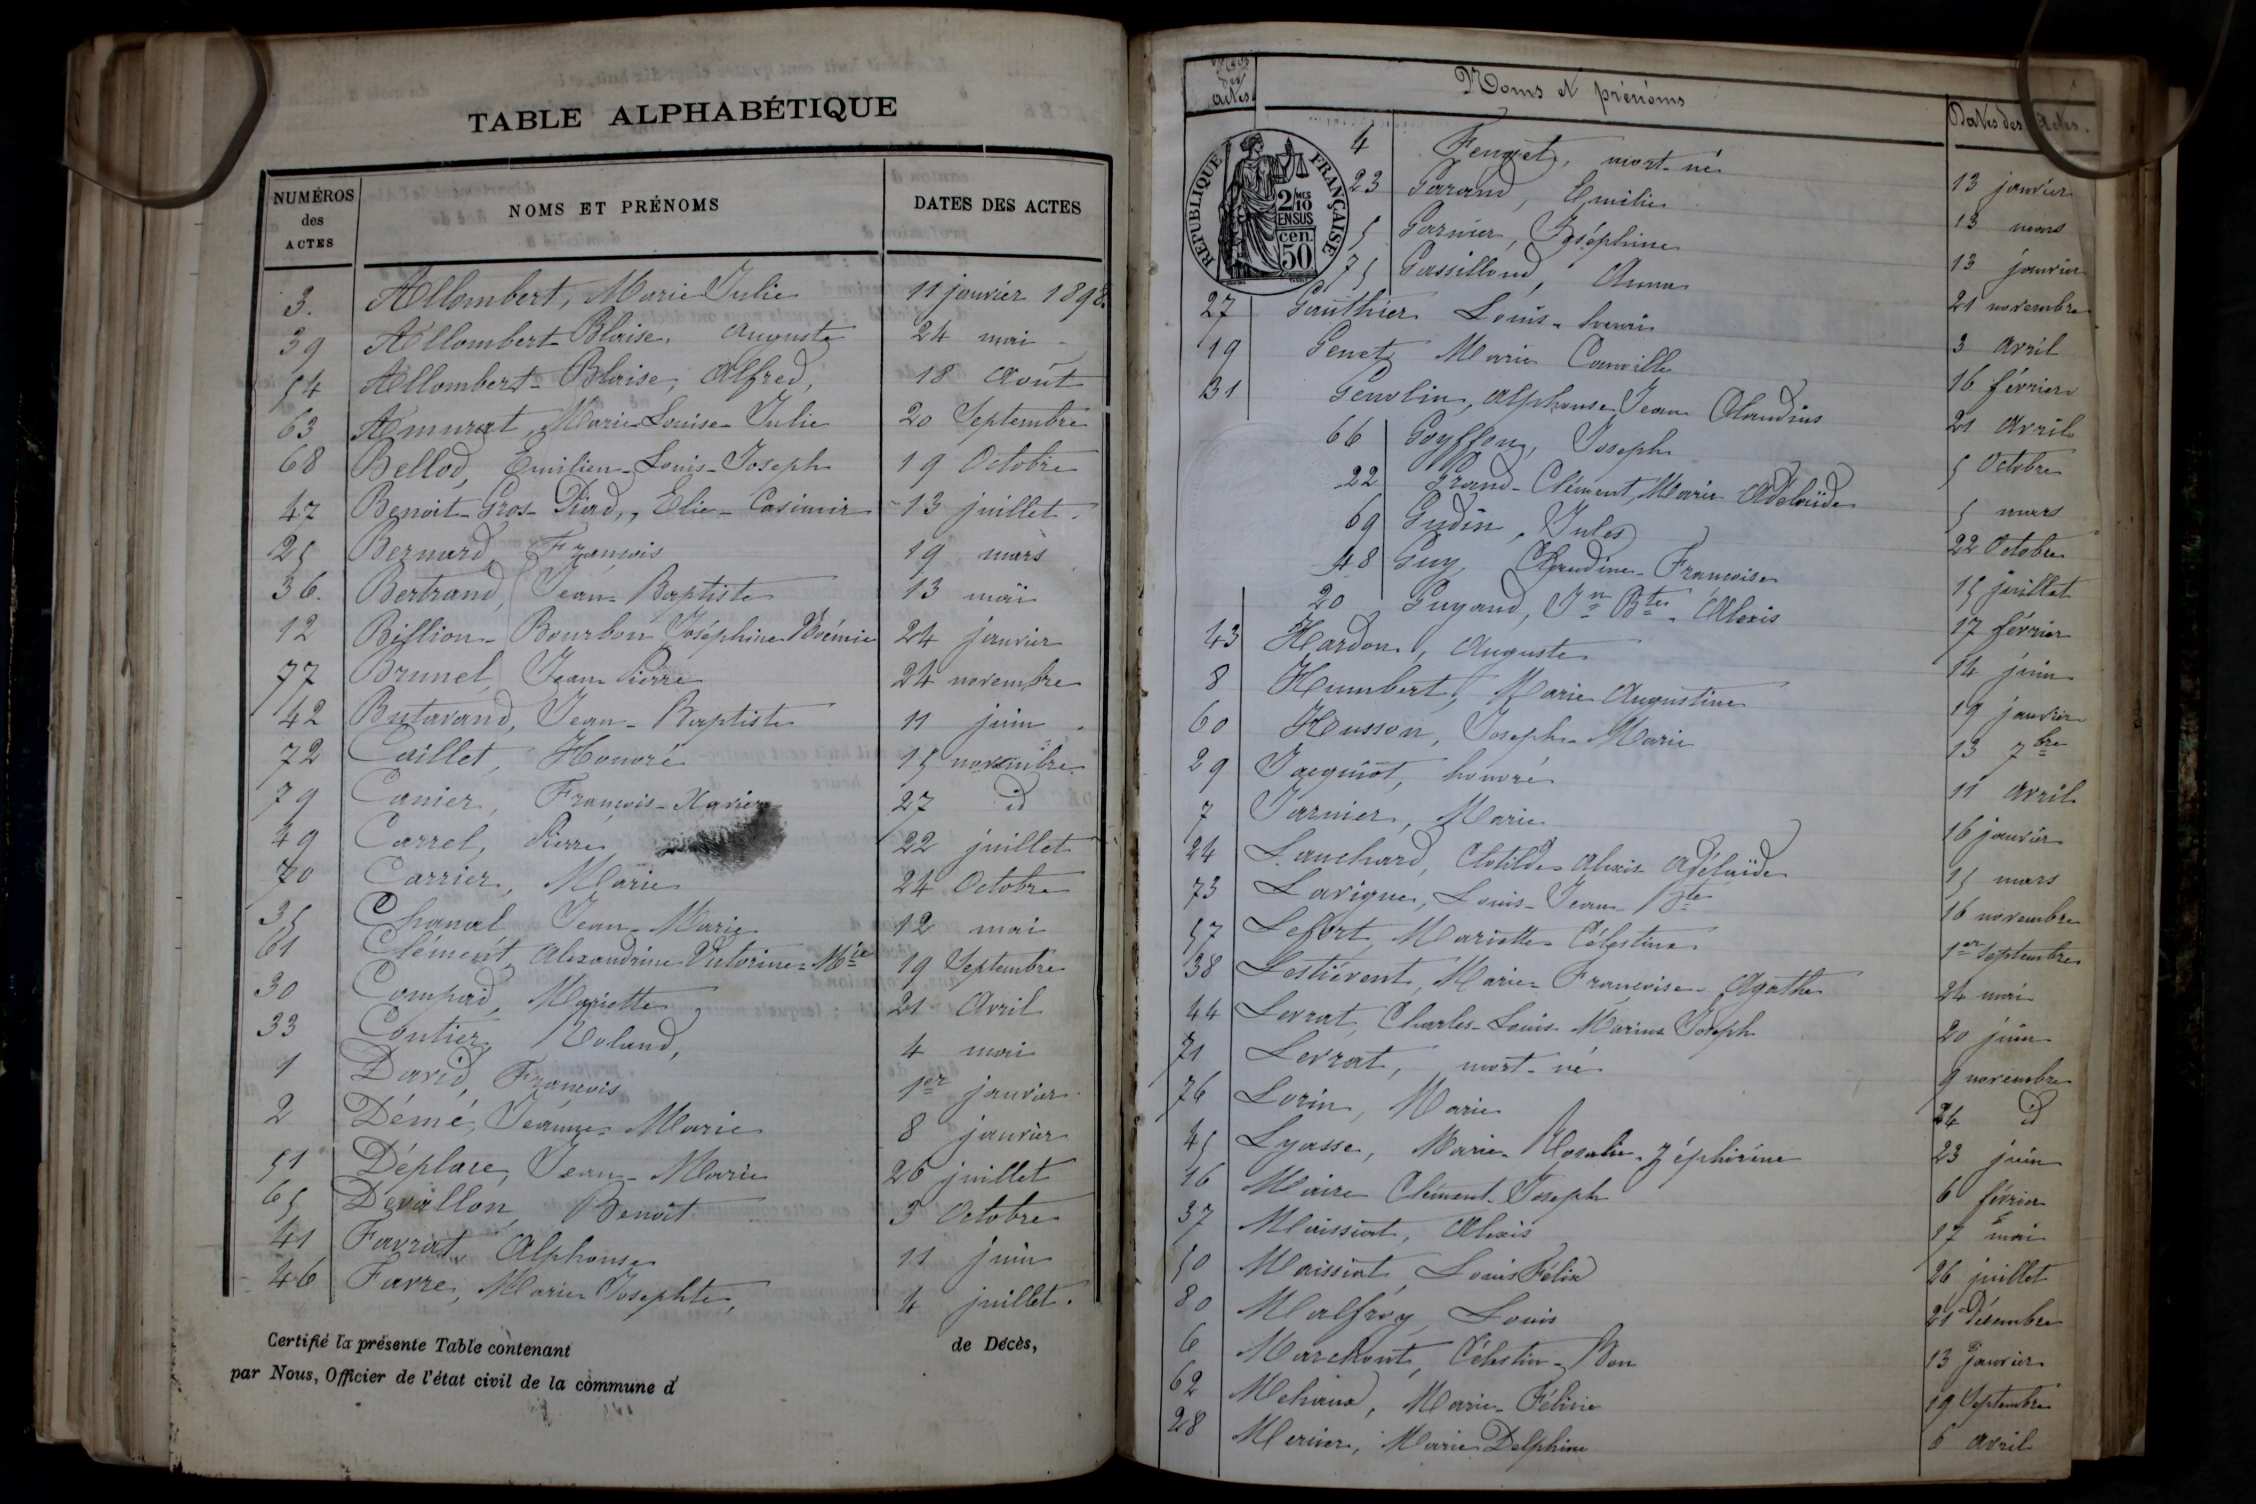 TABLE ALPHABÉTIQUE
NUMÉROS des ACTES NOMS ET PRÉNOMS DATES DES ACTES
3. Allombert, Marie Julie 11 janvier 1898.
39 Allombert-Blaise, Auguste 24 mai
54 Allombert-Blaise, Alfred, 18 Août
63 Amurat, Marie-Louise-Julie 20 Septembre
68 Bellod, Emilien-Louis-Joseph 19 Octobre
47 Benoit-Gros-Piard, Elie-Casimir 13 juillet.
25 Bernard, François 19 mars
36. Bertrand, Jean-Baptiste 13 mai
12 Billion-Bourbon Joséphine Noémie 24 janvier
77 Brunel, Jean Pierre 24 novembre
42 Butavand, Jean-Baptiste 11 juin
72 Caillet, Honoré 15 novembre
79 Canier, François-Xavier 27 id
49 Carrel, Pierre 22 juillet
70 Carrier, Marie 24 Octobre
35 Chanal Jean-Marie 12 mai
61 Clément Alexandrine Victorine-Mie 19 Septembre
30 Compaid, Mariette 21 Avril
33 Coutier, Roland, 4 mai
1 David, François 1er janvier
2 Démé, Jeanne-Marie 8 janvier
51 Déplace, Jean-Marie 26 juillet
65 Devallon Benoit 3 Octobre
41 Favrat, Alphonse 11 juin
46 Favre, Marie Josephte, 4 juillet.
Certifié la présente Table contenant de Décès,
par Nous, Officier de l'état civil de la commune d
Nos des actes Noms et prénoms Dates des Actes.
RÉPUBLIQUE FRANÇAISE
2/10 EN SUS
50 cen.
4 Fenget, mort-né 13 janvier
23 Garand, Emilie 13 mars
5 Garnier, Joséphine 13 janvier
75 Gassilloud, Anna 21 novembre
27 Gauthier Louis-henri 3 avril
19 Genet, Marie Camille 16 février
31 Genolin, Alphonse Jean Claudius 21 avril
66 Goyffon, Joseph 5 Octobre
22 Grand-Clément, Marie Adélaïde 5 mars
69 Gudin, Jules 22 Octobre
48 Guy, Claudine-Françoise 15 juillet
20 Guyand, Jn Bte. Alexis 17 février
43 Hardon, Auguste 14 juin
8 Humbert, Marie Augustine 19 janvier
60 Husson, Joseph-Marie 13 7bre
29 Jacquiot, honoré 11 avril
7 Jarnier, Marie 16 janvier
24 Lanchard, Clotilde Alexis Adélaïde 15 mars
73 Lavigne, Louis-Jean-Bte 16 novembre
57 Lefort, Mariette Célestine 1er Septembre
38 Lestiévent, Marie-Françoise-Agathe 24 mai
44 Levrat, Charles-Louis-Marius Joseph 20 juin
71 Levrat, mort-né 9 novembre
76 Lorin, Marie 24 id
45 Lyasse, Marie-Rosalie-Zéphirine 23 juin
16 Maire Clément-Joseph 6 février
37 Maissiat, Alexis 17 mai
50 Maissiat, Louis Félix 26 juillet
80 Malfroy, Louis 21 Décembre
6 Marchant, Célestin-Bon 13 janvier
62 Marie-Féline 19 Septembre
28 Mercier, Marie Delphine 6 avril